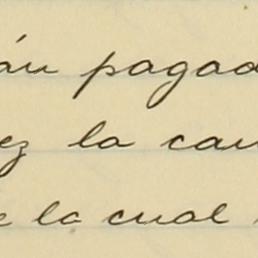 án pagad
ez la can
e la cual